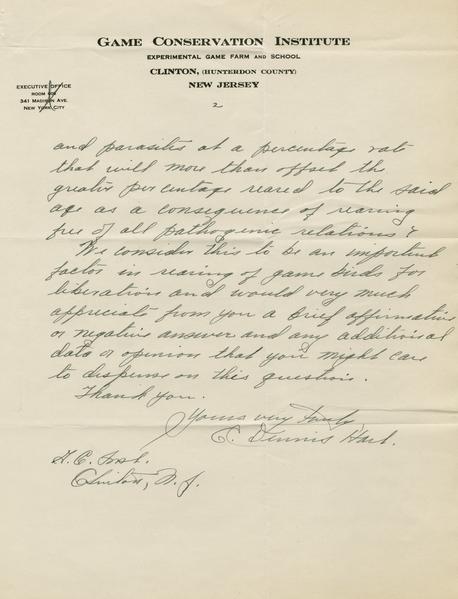 GAME CONSERVATION INSTITUTE
EXPERIMENTAL GAME FARM AND SCHOOL
CLINTON, (HUNTERDON COUNTY)
NEW JERSEY
EXECUTIVE OFFICE
ROOM
341 MADISON AVE.
NEW YORK CITY
2
and parasites at a percentage rate
that will more than offset the
greater percentage reared to the said
age as a consequence of rearing
free of all pathogenic relations?
We consider this to be an important
factor in rearing of game birds for
liberation and would very much
appreciate from you a brief affirmative
or negative answer and any additional
data or opinion that you might care
to dispense on this question.
Thank you.
Yours very truly
C. Dennis Hart.
G. C. Inst.
Clinton, N. J.